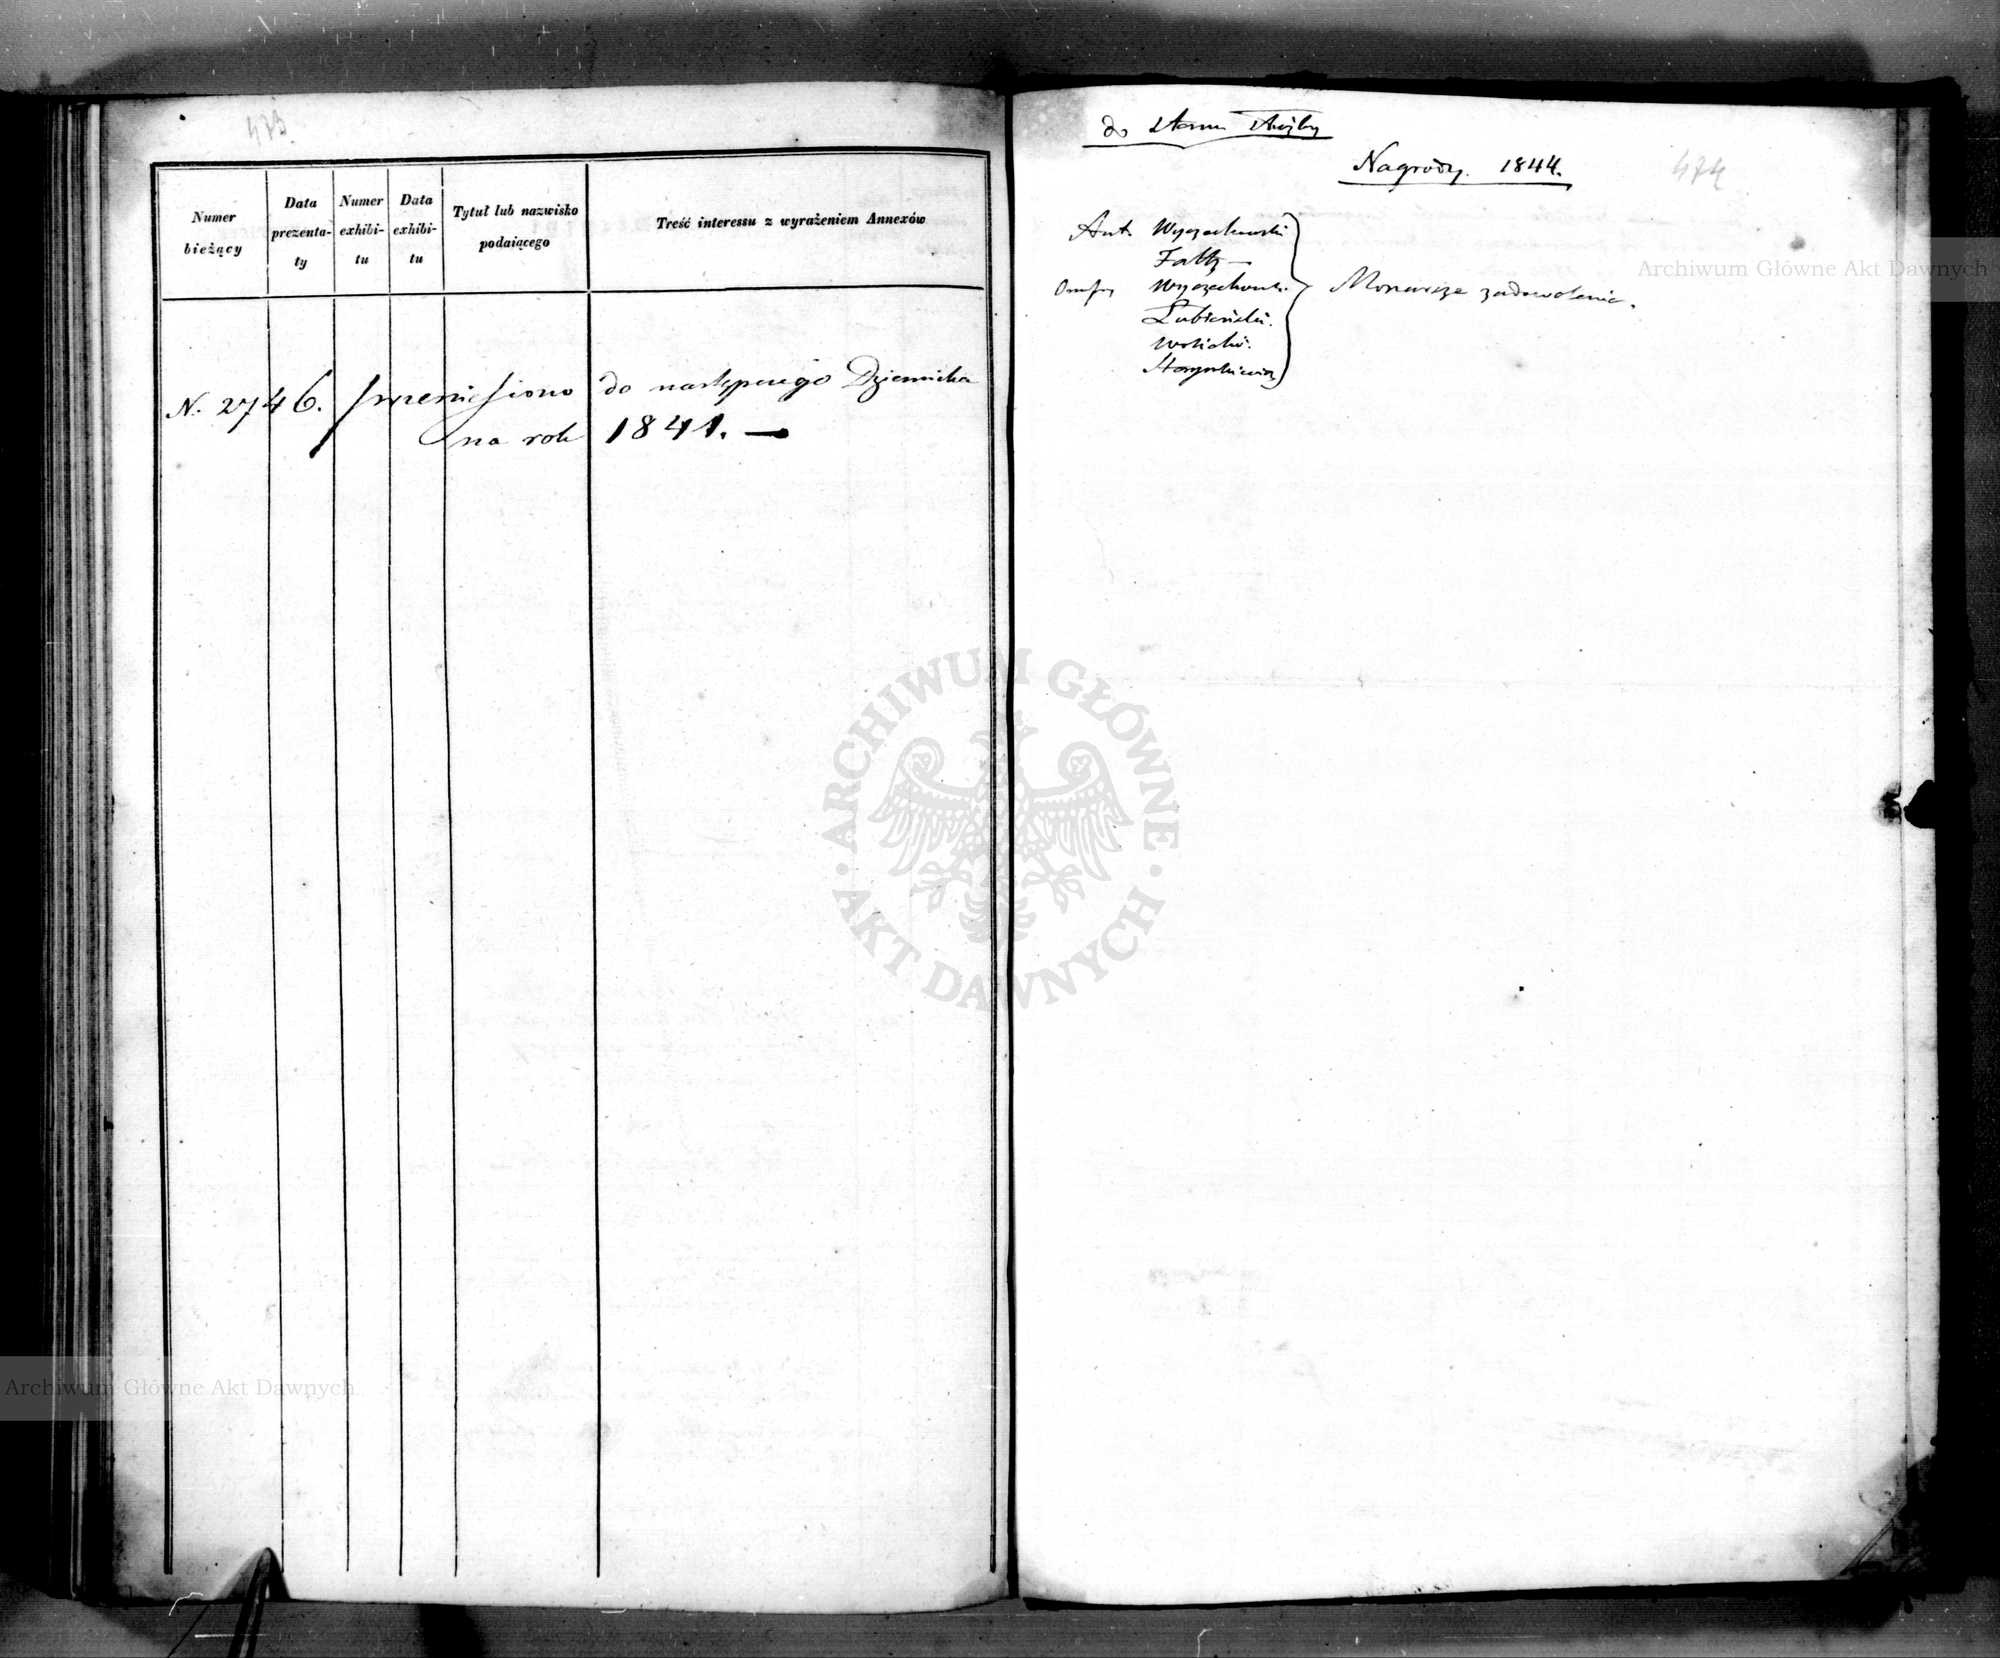 473
Numer bieżący
Data prezentaty
Numer exhibitu
Data exhibitu
Tytuł lub nazwisko podaiącego
Treść interessu z wyrażeniem Annexów
N. 2746. przeniesiono do następnego Dziennika
na rok 1841. —
do stanu służby
Nagrody. 1844.
474
Ant. Wyczechowski
Faltz —
Onufry Wyczechowski
Łubieński.
Wolicki.
Monarsze zadowolenie.
Archiwum Główne Akt Dawnych
Archiwum Główne Akt Dawnych
ARCHIWUM GŁÓWNE · AKT DAWNYCH ·